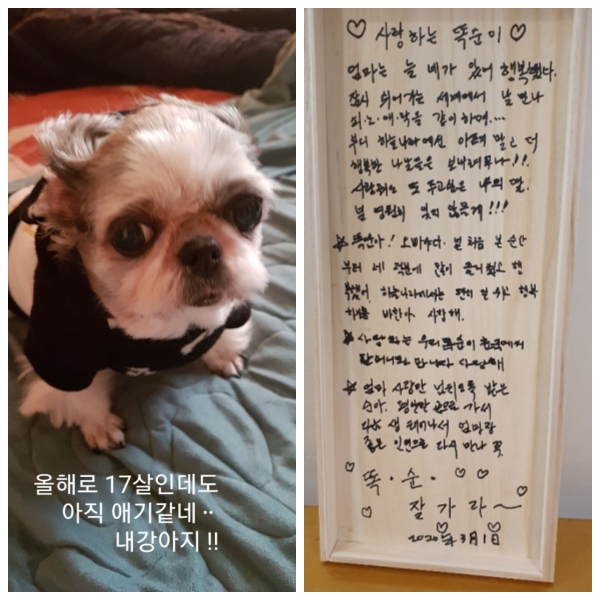 올해로 17살인데도
아직 애기같네..
내강아지 !!
♡ 사랑하는 똑순이 ♡
엄마는 늘 네가 있어 행복했다.
잠시 뛰어가는 세계에서 날 만나
희.노.애.락을 같이 하며...
부디 하늘나라에선 아프지 말고 더
행복한 나날들은 보내려무나!!.
사랑하는 또 두고싶은 나의 딸.
널 영원히 잊지 않을게!!!
☆ 똑순아! 오빠다. 널 처음 본 순간
부터 네 덕분에 많이 즐거웠고 행
복했어. 하늘나라에서는 편히 쉬고 행복
하기를 바란다 사랑해.
☆ 사랑하는 우리똑순이 천국에서
할머니와 만나자 사랑해
☆ 엄마 사랑만 넘치도록 받은
순아. 평안한 곳으로 가서
다음 생 태어나서 엄마랑
좋은 인연으로 다시 만나 꼭.
똑.순.
잘가라~
2020年 3月 1日